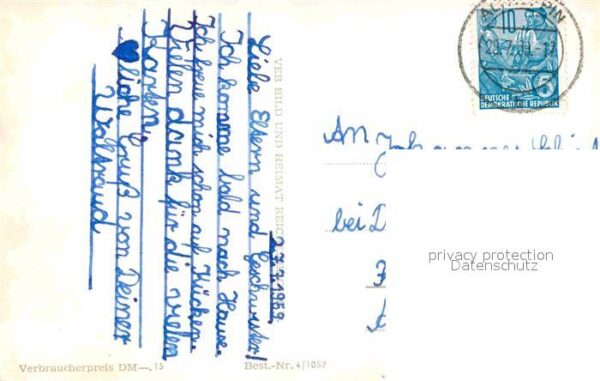 27.7.1959
Liebe Eltern und Geschwister!
Ich komme bald nach Hause.
Ich freue mich schon auf Kücken.
Vielen dank für die vielen
Karten.
♥liche Gruß von Deiner
Waltraud
VEB BILD UND HEIMAT REIC
Verbraucherpreis DM —, 15
Best.-Nr. 4/1052
10
5
DEUTSCHE
DEMOKRATISCHE REPUBLIK
An
bei
privacy protection
Datenschutz